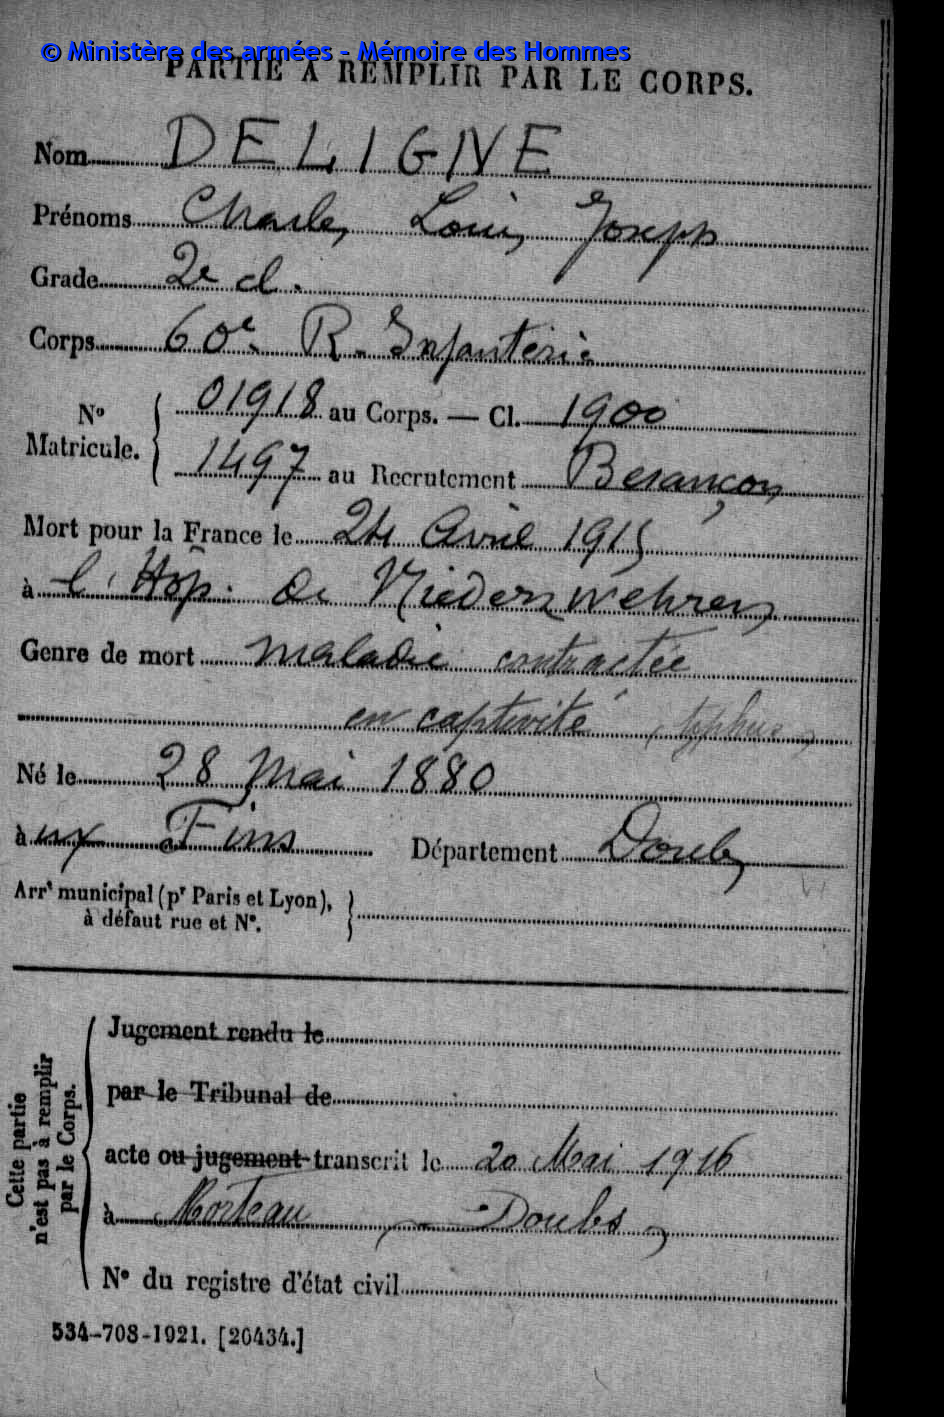 © Ministère des armées - Mémoire des Hommes
PARTIE À REMPLIR PAR LE CORPS.
Nom DELIGNE
Prénoms Charles Louis Joseph
Grade 2e cl.
Corps 60e R. Infanterie
No Matricule. { 01918 au Corps. — Cl. 1900
1497 au Recrutement Besançon
Mort pour la France le 24 Avril 1915
à l'Hôp. de Niederzwehren
Genre de mort maladie contractée
en captivité (typhus)
Né le 28 Mai 1880
à ux Fins Département Doubs
Arrt municipal (pr Paris et Lyon),
à défaut rue et No. }
Cette partie
n'est pas à remplir
par le Corps.
Jugement rendu le
par le Tribunal de
acte ou jugement transcrit le 20 Mai 1916
à Morteau (Doubs)
No du registre d'état civil
534-708-1921. [20434.]